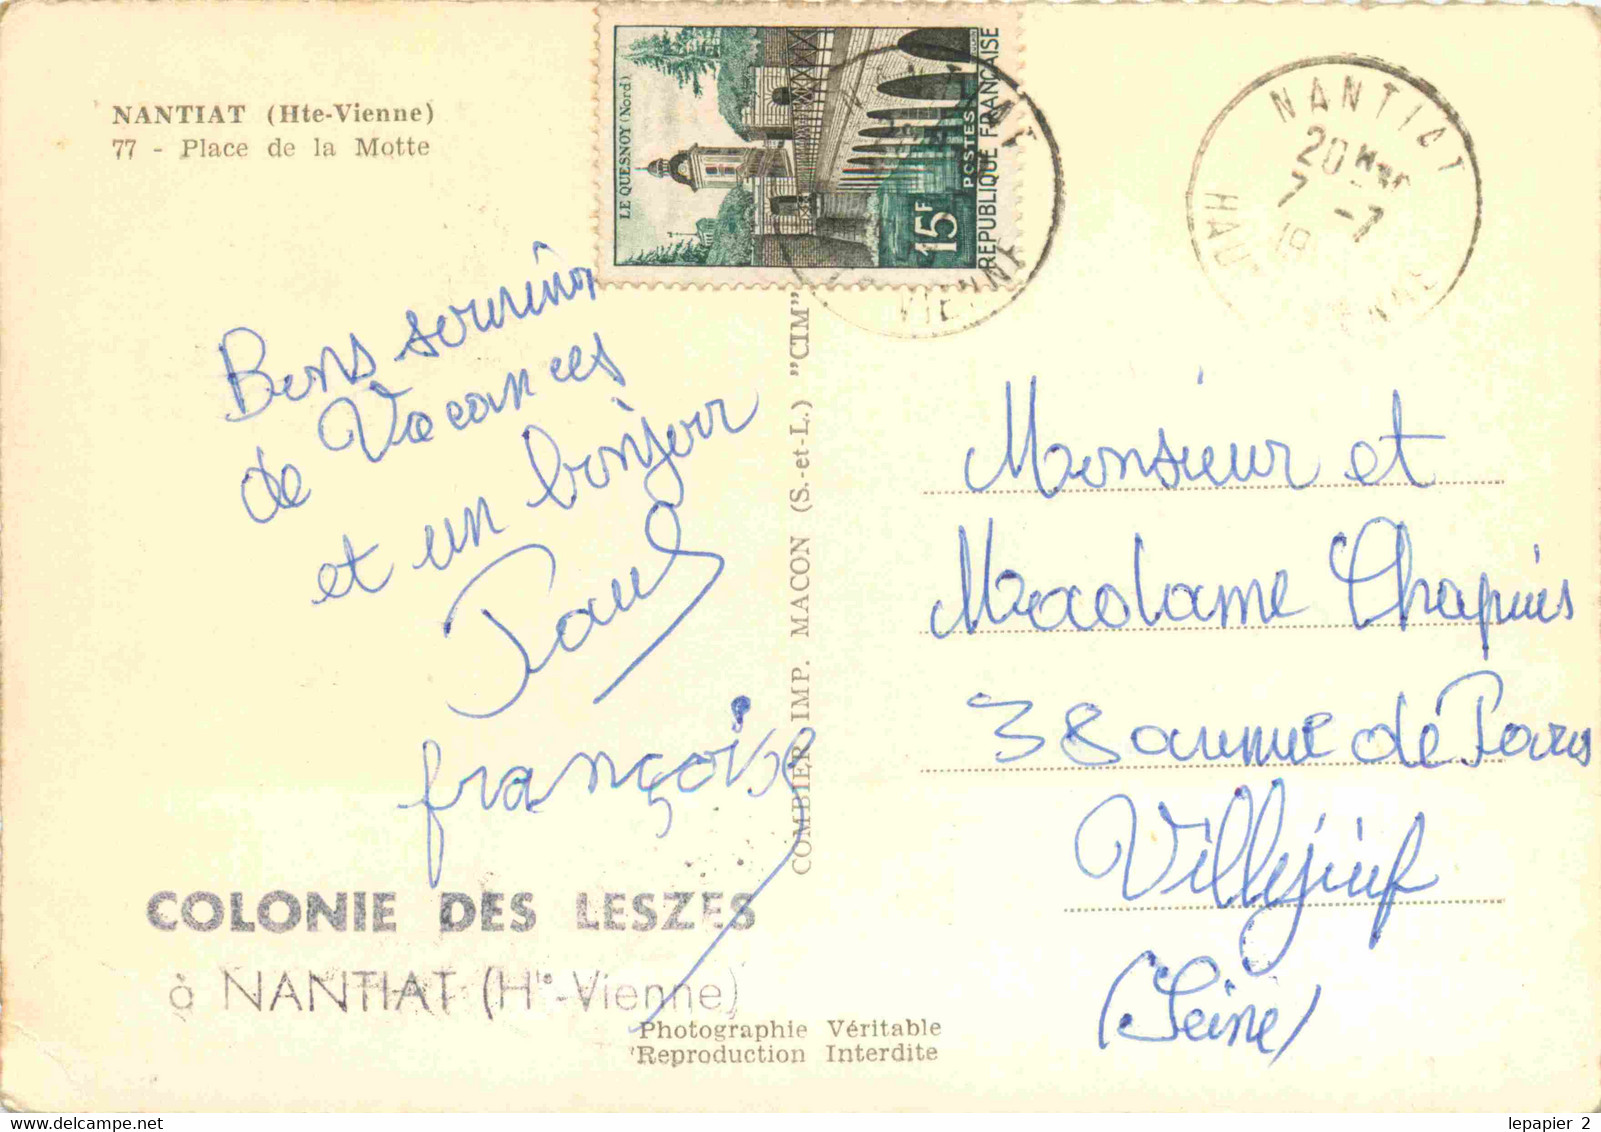 NANTIAT (Hte-Vienne)
77 - Place de la Motte
LE QUESNOY (Nord)
15F
POSTES
REPUBLIQUE FRANÇAISE
VIENNE
NANTIAT
20H
7 -7
19
Bons souvenirs
de Vacances
et un bonjour
Paul
françoise
COLONIE DES LESZES
à NANTIAT (Hte-Vienne)
COMBIER IMP. MACON (S.-et-L.) "CIM"
Photographie Véritable
Reproduction Interdite
Monsieur et
Madame Chapuis
38 avenue de Paris
Villejuif
(Seine)
lepapier 2